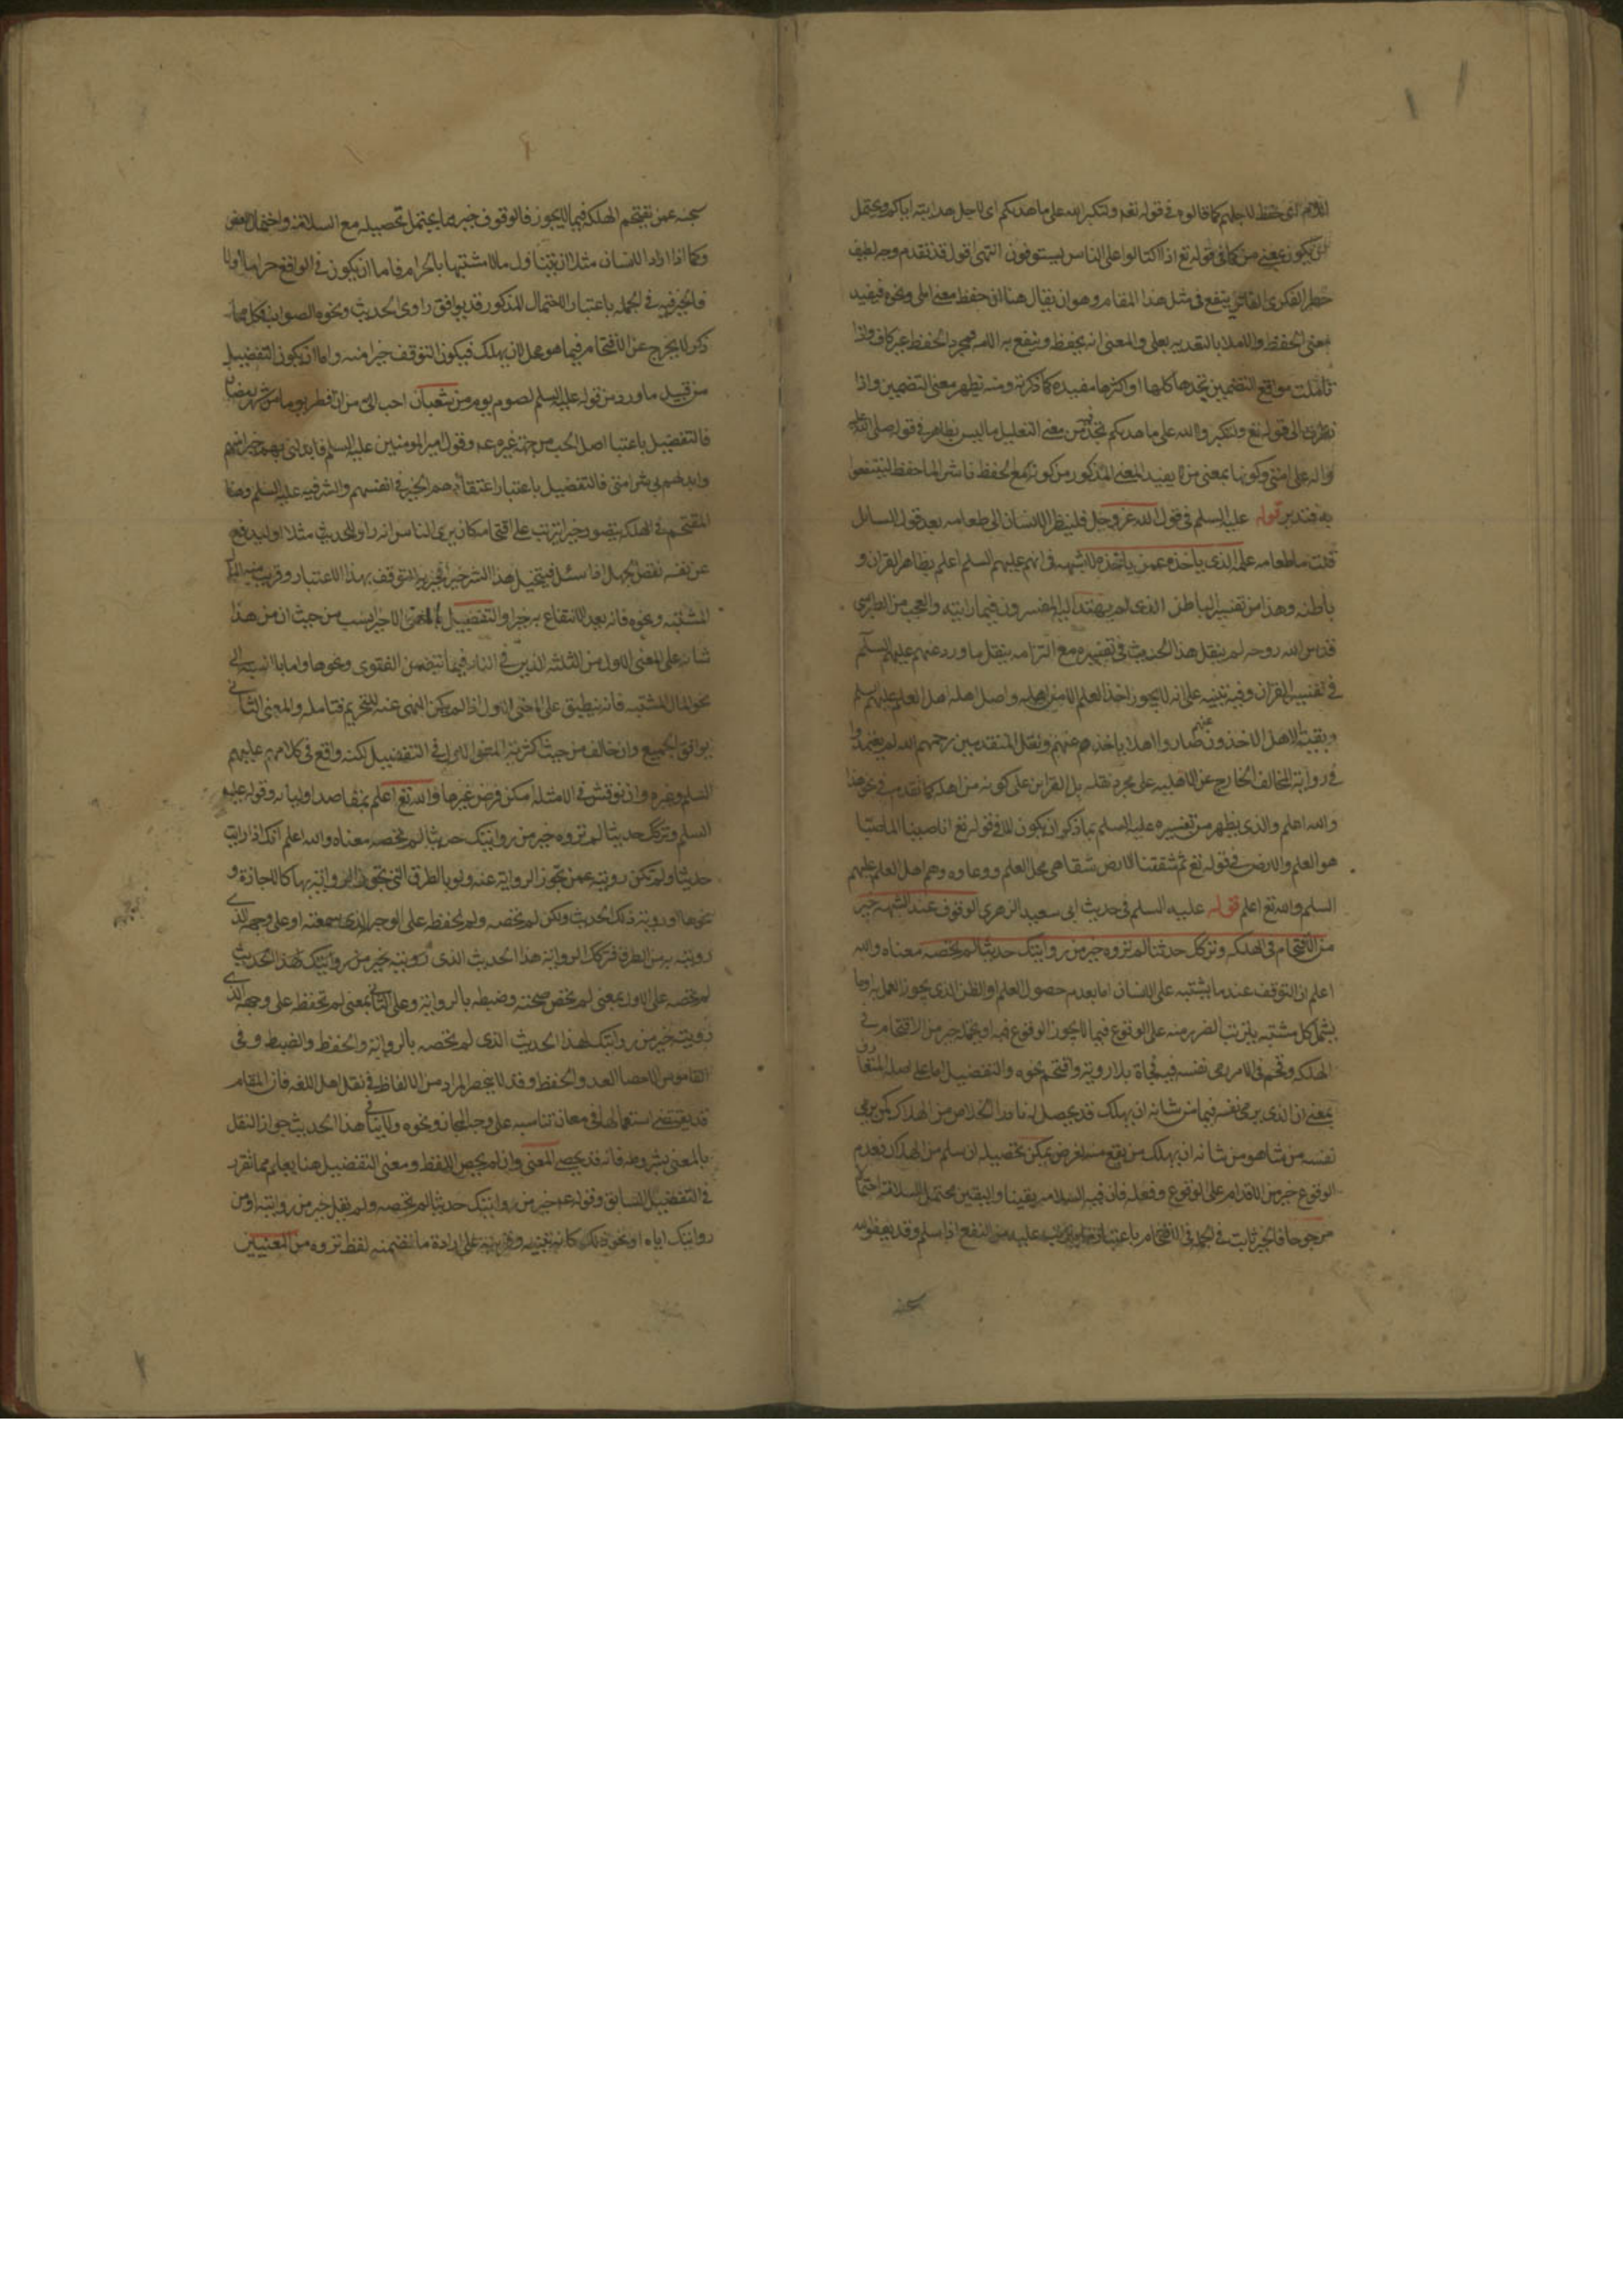 اللام اى حفظ لاجلهم كما قالوه فى قوله تعه ولتكبروا الله على ما هديكم اى لاجل هدايته اياكم ويحتمل
ان يكون بمعنى من كما فى قوله تع اذا اكتالوا على الناس يستوفون انتهى اقول قد تقدم وجه لطيف
خطر لفكرى الفاتر ينفع فى مثل هذا المقام وهو ان يقال هنا ان حفظ معنى املى ونحوه فيفيد
معنى الحفظ والاملا بالتعديه بعلى والمعنى انه يحفظ وينفع به الامه فمجرد الحفظ غير كاف واذا
تاملت مواقع التضمين تجدها كلها او اكثرها مفيده كما ذكرته ومنه يظهر معنى التضمين واذا
نظرت الى قوله تع ولتكبروا الله على ما هديكم تجد فيه من معنى التعليل ما ليس بظاهر فى قوله صلى الله عليه
واله على امتى وكونها بمعنى من لا يفيد المعنى المذكور من كونه مع الحفظ ناشرا لما حفظ لينتفعوا
به فتدبر قوله عليه السلم فى قول الله عز وجل فلينظر الانسان الى طعامه بعد قول السائل
قلت ما طعامه علمه الذى ياخذه عمن ياخذه لا شبهه فى انهم عليهم السلم اعلم بظاهر القران و
باطنه وهذا من تفسير الباطن الذى لم يهتد اليه المفسرون فيما رايته والعجب من الطبرسى
قدس الله روحه لم ينقل هذا الحديث فى تفسيره مع التزامه بنقل ما ورد عنهم عليهم السلم
فى تفسير القران وفيه تنبيه على انه لا يجوز اخذ العلم الا من اهله واصل اهله اهل العلم عليهم السلم
وبقيت الاهل الاخذون عنهم فصاروا اهلا باخذهم عنهم ونقل المتقدمين رحمهم الله لم يعتمدوا
فى رواية المخالف الخارج عن الاهليه على مجرد نقله بل القراين على كونه من اهله كما تقدم فى نحو هذا
والله اعلم والذى يظهر من تفسيره عليه السلم بما ذكر ان يكون الماء فى قوله تع انا صببنا الماء صبا
هو العلم والارض فى قوله تع ثم شققنا الارض شقا هى محل العلم ووعاوه وهم اهل العلم عليهم
السلم والله تع اعلم قوله عليه السلم فى حديث ابى سعيد الزهرى الوقوف عند الشبهه خير
من الاقتحام فى الهلكه وتركك حديثا لم تروه خير من روايتك حديثا لم تحصه معناه والله
اعلم ان التوقف عند ما يشتبه على الانسان اما بعدم حصول العلم او الظن الذى يجوز العمل به وما
يشمل كل مشتبه يترتب الضرر منه على الوقوع فيما لا يجوز الوقوع فيه او نحوه خير من الاقتحام فى
الهلكه وقحم فى الامر رمى نفسه فيه فجاة بلا روية واقتحم نحوه والتفضيل اما على اصله المتعارف
بمعنى ان الذى يرمى نفسه فيما من شانه ان يهلك قد يحصل له نادرا الخلاص من الهلاك كمن يرمى
نفسه من شاهق من شانه ان يهلك من يقع منه لغرض يمكن تحصيله ان سلم من الهلاك فعدم
الوقوع خير من الاقدام على الوقوع وفعله فان فيه السلامه يقينا واليقين محتمل السلامة احتمالا
مرجوحا فالخير ثابت فى الجمله فى الاقتحام باعتبار ما يترتب عليه من النفع اذا سلم وقد يعفو الله
سبحنه عمن يقتحم الهلكه فيما لا يجوز فالوقوف خير مما يحتمل تحصيله مع السلامة واحتمال العفو
وكما اذا اراد الانسان مثلا ان يتناول مالا مشتبها بالحرام فاما ان يكون فى الواقع حراما او لا
فالخير فيه فى الجمله باعتبار الاحتمال المذكور قد يوافق راوى الحديث ونحوه الصواب فكل مما
ذكر لا يخرج عن الاقتحام فيما هو محل لان يهلك فيكون التوقف خيرا منه واما ان يكون التفضيل
من قبيل ما ورد من قوله عليه السلم لصوم يوم من شعبان احب الى من ان افطر يوما من شهر رمضان
فالتفضيل باعتبار اصل الحب من جهة غيره عه وقول امير المومنين عليه السلم فابدلنى بهم خيرا منهم
وابدلهم بى شرا منى فالتفضيل باعتبار اعتقادهم الخير فى انفسهم والشر فيه عليه السلم وهنا
المقتحم فى الهلكه يتصور خيرا يترتب على اقتحامه كان يرى الناس انه راو للحديث مثلا او ليدفع
عن نفسه نقص الجهل اذا سئل فيتخيل هذا الشر خيرا فخيريه التوقف بهذا الاعتبار وقريب منه المال
المشتبه ونحوه فانه يعد الانتفاع به خيرا والتفضيل بالمعنى الاخير انسب من حيث ان من هذا
شانه على المعنى الاول من الثلثه الذين فى النار فيما تتضمن الفتوى ونحوها واما بالنسبه الى
نحو المال المشتبه فانه ينطبق على المعنى الاول اذا لم يكن النهى عنه للتحريم فتامله والمعنى الثانى
يوافق الجميع وان خالف من حيث اكثرية المعنى الاول فى التفضيل لكنه واقع فى كلامهم عليهم
السلم وغيره وان نوقش فى الامثله امكن فرض غيرها والله تع اعلم بمقاصد اوليائه وقوله عليه
السلم وتركك حديثا لم تروه خير من روايتك حديثا لم تحصه معناه والله اعلم انك اذا رايت
حديثا ولم تكن رويته عمن تجوز الروايه عنه ولو بالطرق التى تجوز الروايه بها كالاجازة و
نحوها او رويته ذلك الحديث ولكن لم تحصه ولم تحفظه على الوجه الذى سمعته او على وجهه الذى
رويته به من الطرق فتركك الرواية هذا الحديث الذى رويته خير من روايتك لهذا الحديث
لم تحصه على الاول بمعنى لم تحص صحته وضبطه بالرواية وعلى الثانى بمعنى لم تحفظه على وجهه الذى
رويته خير من روايتك لهذا الحديث الذى لم تحصه بالرواية والحفظ والضبط وفى
القاموس الاحصا العد والحفظ وقد لا ينحصر المراد من الالفاظ فى نقل اهل اللغه فان المقام
قد يقتضى استعمالها فى معان تناسبه على وجه المجاز ونحوه ولا ينافى هذا الحديث جواز النقل
بالمعنى بشروطه فانه قد يحصى المعنى وان لم يحص اللفظ ومعنى التفضيل هنا يعلم مما تقرر
فى التفضيل السابق وقوله عه خير من روايتك حديثا لم تحصه ولم يقل خير من روايته او من
روايتك اياه او نحو ذلك كانه تنبيه وقرينه على ارادة ما تضمنه لفظ تروه من المعنيين
سبحنه